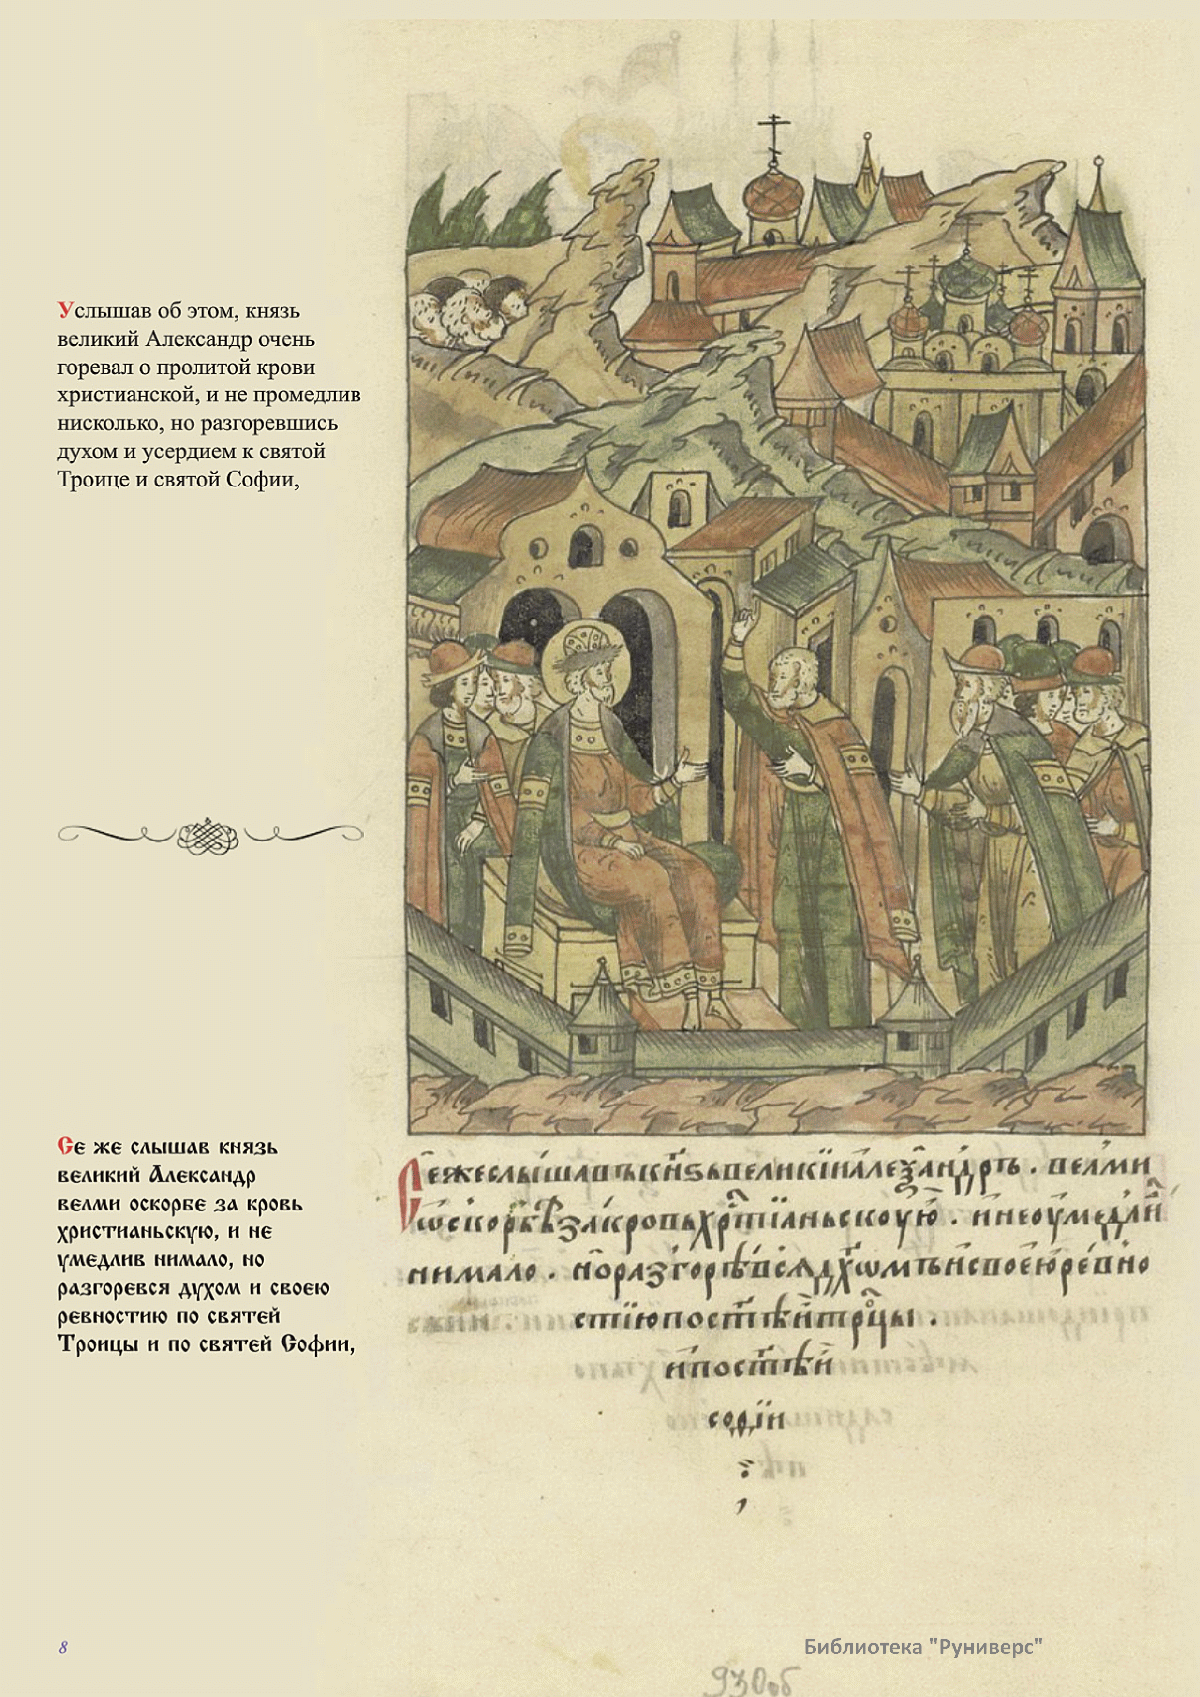 Услышав об этом, князь
великий Александр очень
горевал о пролитой крови
христианской, и не промедлив
нисколько, но разгоревшись
духом и усердием к святой
Троице и святой Софии,
Се же слышав князь
великий Александр
велми оскорбе за кровь
християньскую, и не
умедлив нимало, но
разгоревся духом и своею
ревностию по святей
Троицы и по святей Софии,
Сежеслышавъкн҃ѕьвеликїиалеѯандръ . велми
ѡскорбѣзакровьхрⷭ҇тїаньскоую . инеоумедли
нимало . норазгорѣвсѧдх҃ѡмъисвоеюревно
стїюпост҃ѣитрⷪ҇цы .
ипост҃ѣи
софїи
8
Библиотека "Руниверс"
930об